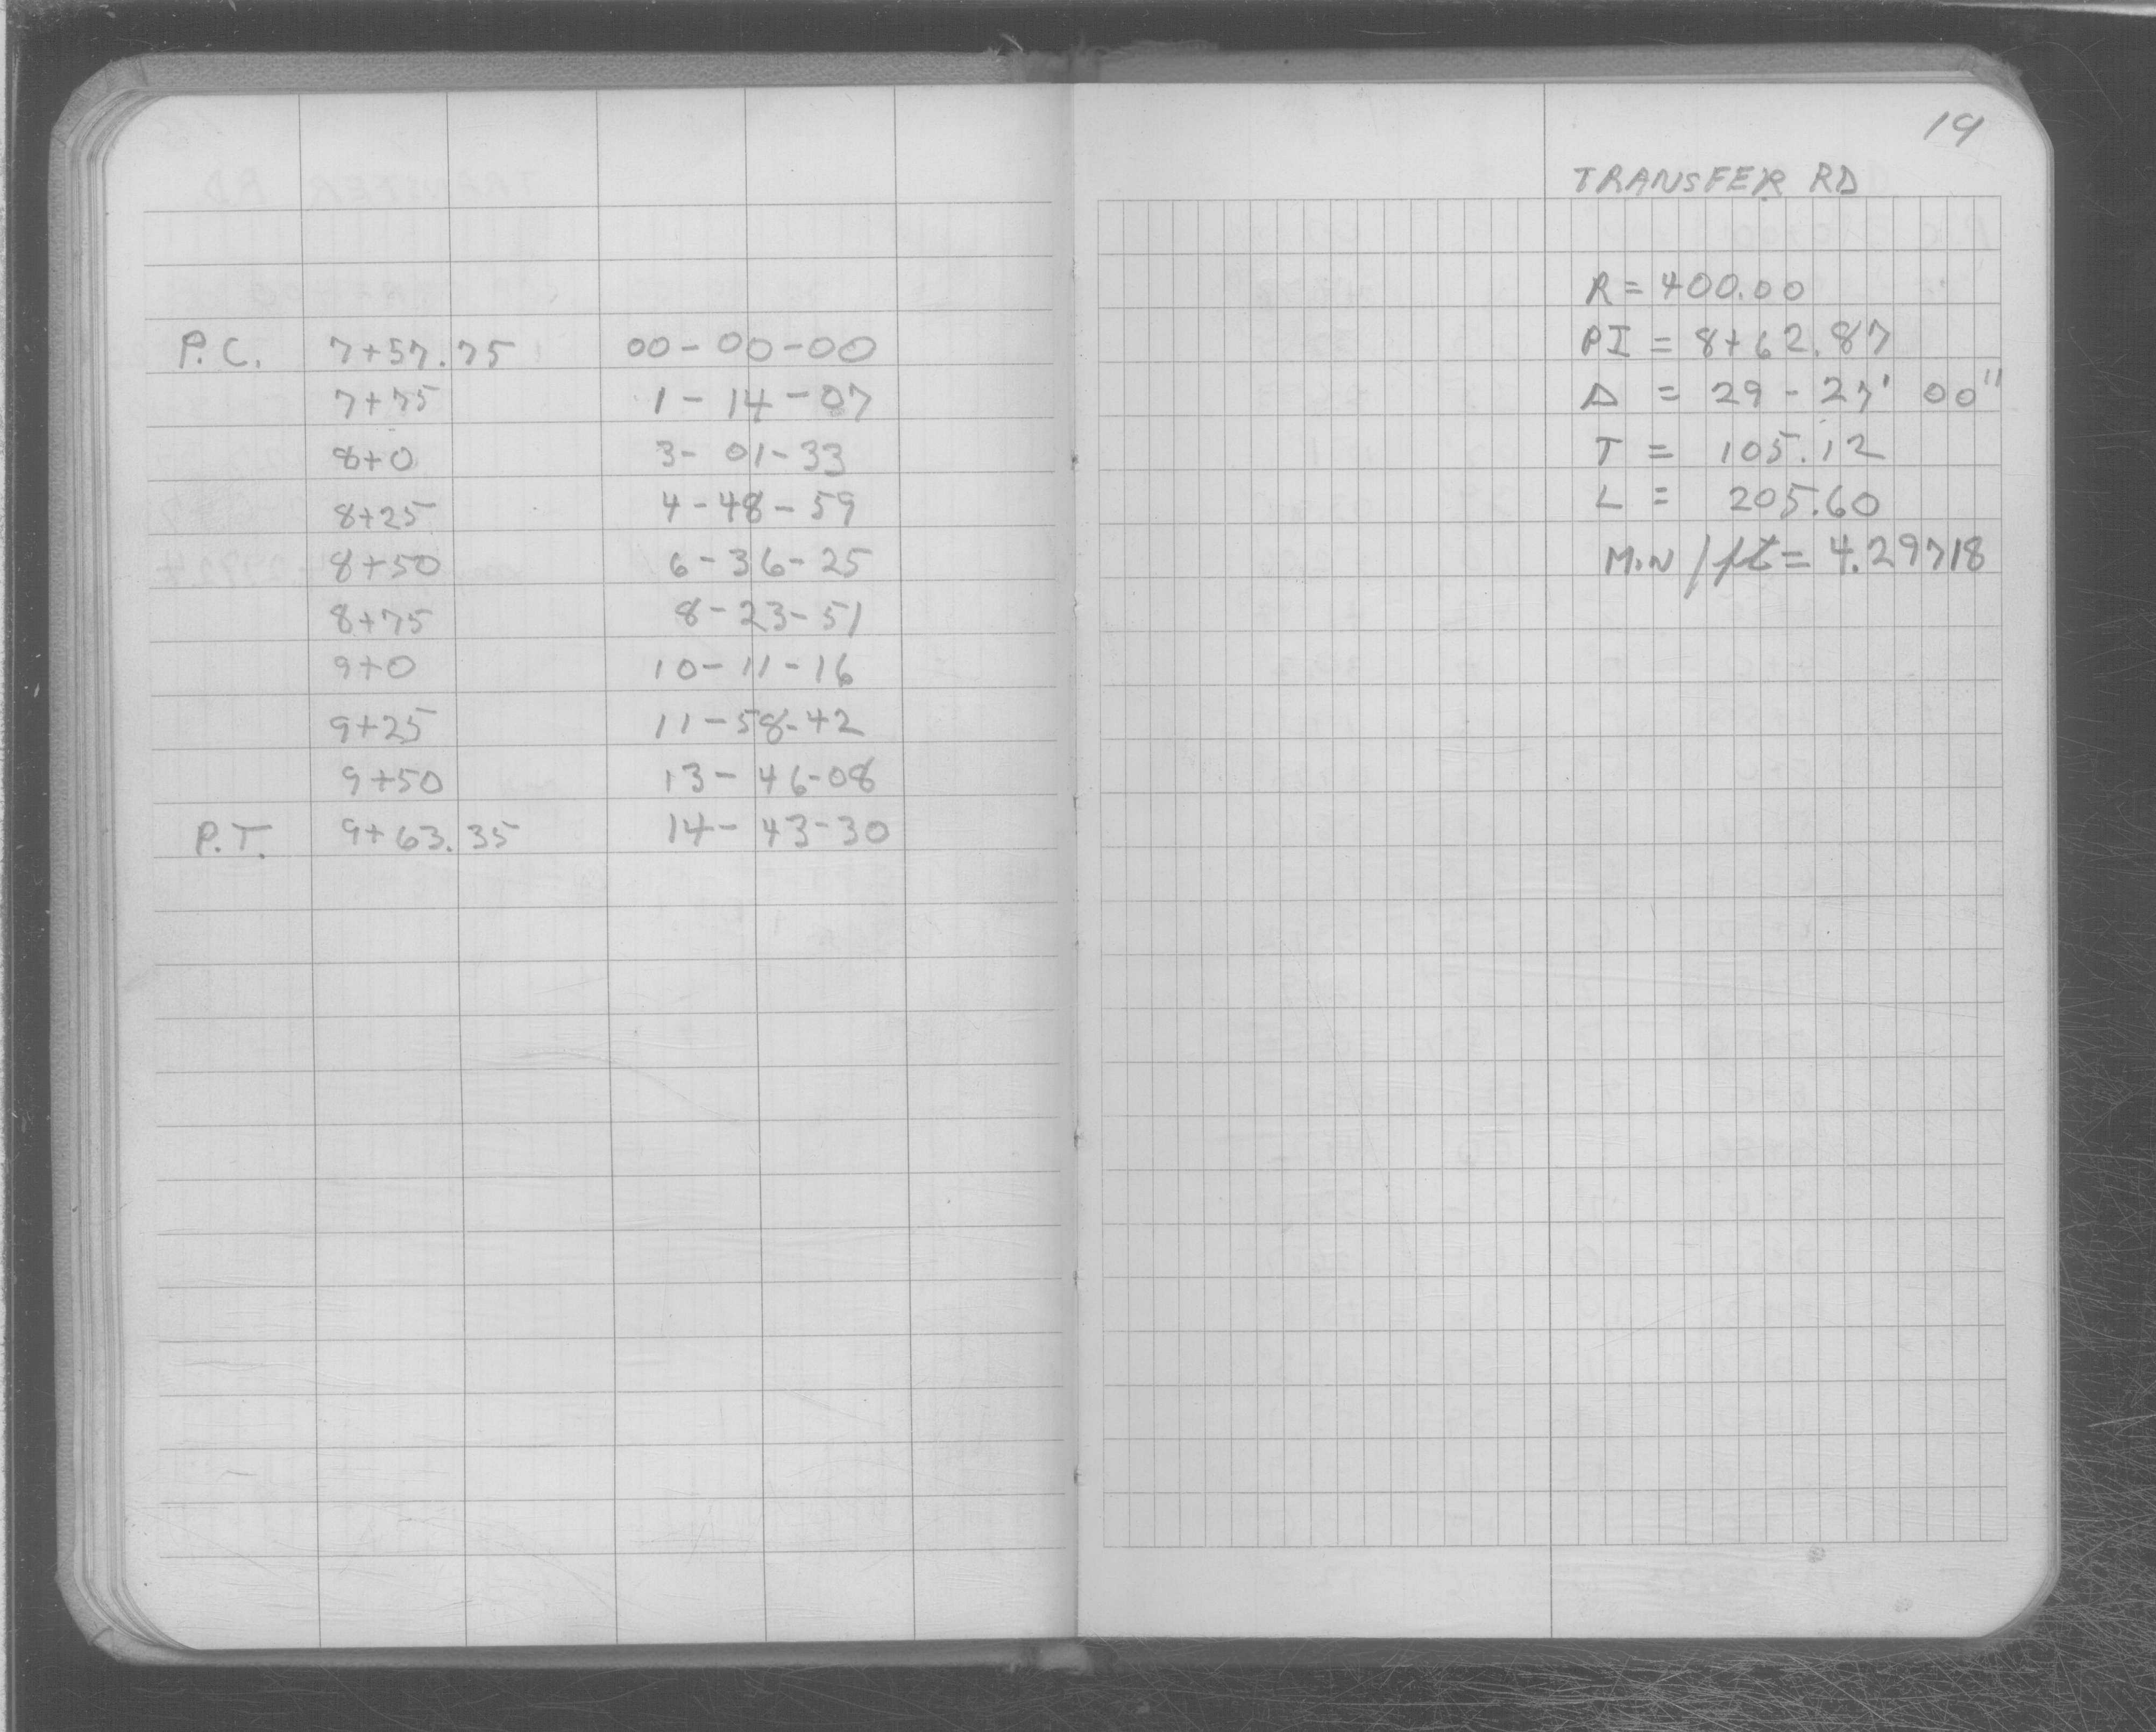 P.C. 7+57.75 00-00-00
7+75 1-14-07
8+0 3-01-33
8+25 4-48-59
8+50 6-36-25
8+75 8-23-51
9+0 10-11-16
9+25 11-58-42
9+50 13-46-08
P.T. 9+63.35 14-43-30
19
TRANSFER RD
R = 400.00
PI = 8+62.87
Δ = 29-27' 00"
T = 105.12
L = 205.60
Min/ft = 4.29718